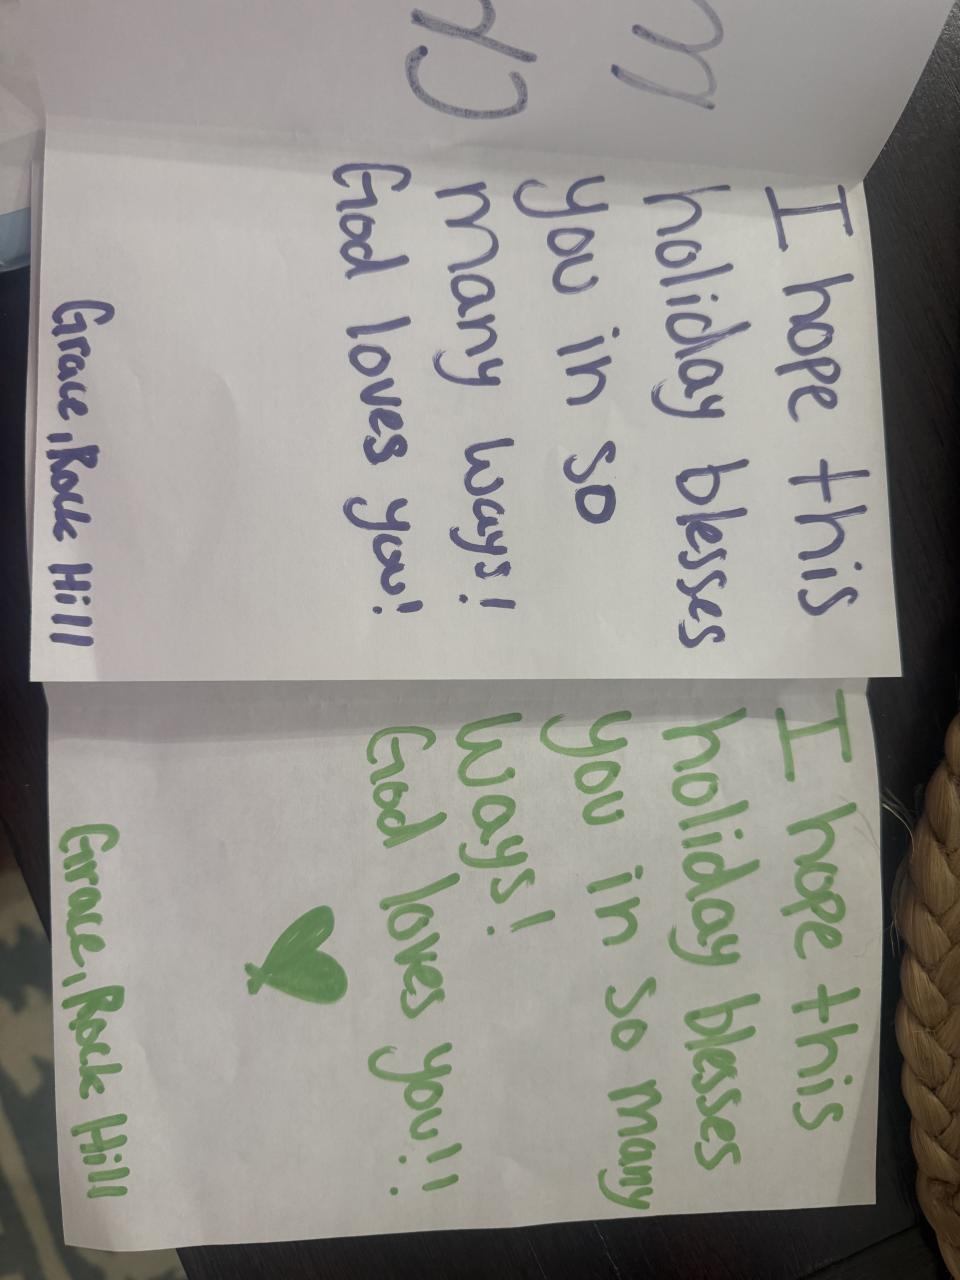 I hope this
holiday blesses
you in so
many ways!
God loves you!
Grace, Rock Hill
I hope this
holiday blesses
you in so many
ways!
God loves you!!
Grace, Rock Hill